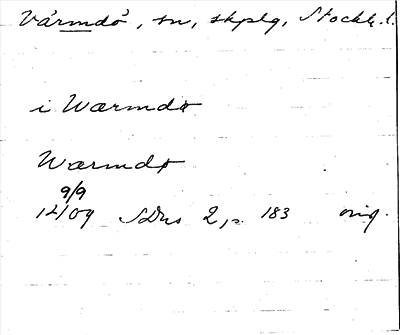 Värmdö, sn, skplg, Stockh. l.
i Wærmdø
Wærmdø
9/9
12/09 SDns 2, s. 183 orig.